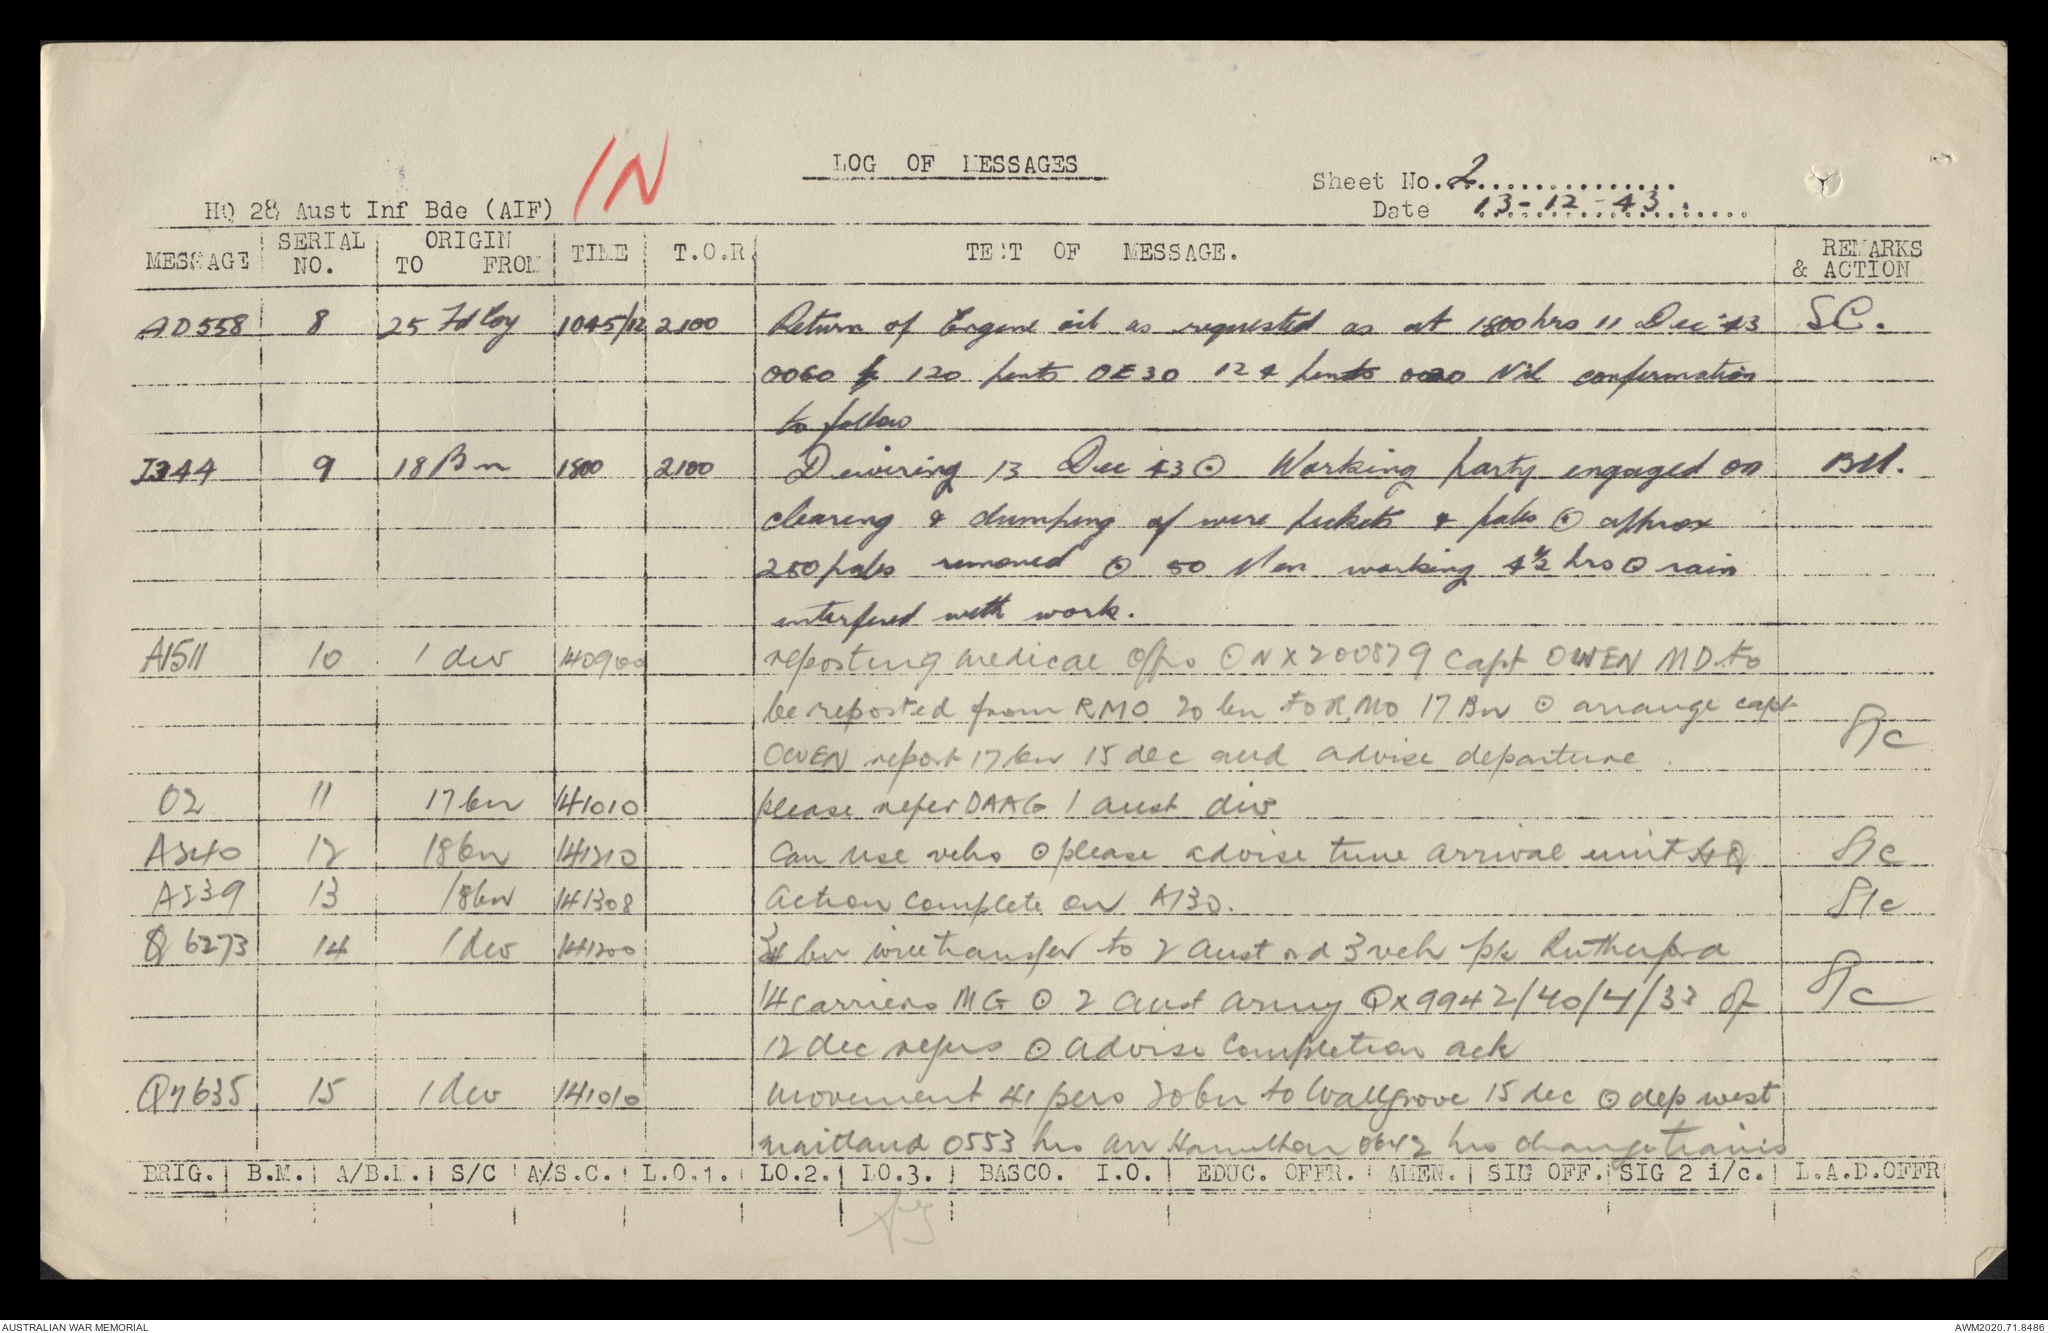 IN
LOG OF MESSAGES
Sheet No. 2
HQ 28 Aust Inf Bde (AIF)
Date 13-12-43.
MESSAGE SERIAL NO. ORIGIN TO FROM TIME T.O.R. TEXT OF MESSAGE. REMARKS & ACTION
AD558 8 25 Fd Coy 1045/12 2100 Return of Engine oil as requested as at 1800 hrs 11 Dec 43 SC.
120 pints OE30 124 pints Nil confirmation
to follow
J344 9 18 Bn 1800 2100 Dewiring 13 Dec 43 ⊙ Working party engaged on BM.
clearing & dumping of wire pickets & pales ⊙ approx
250 pales removed ⊙ 50 Men working 4½ hrs ⊙ rain
interfered with work.
A1511 10 1 div 140900 reposting medical offrs ⊙ NX200879 Capt OWEN MD to
be reposted from RMO 20 bn to RMO 17 Bn ⊙ arrange capt
OWEN report 17 bn 15 dec and advise departure S/C
O2 11 17 bn 141010 please refer DAAG 1 aust div
A340 12 18 bn 141210 Can use vehs ⊙ please advise time arrival unit HQ S/C
A339 13 18 bn 141308 Action complete on A130. S/C
Q 6273 14 1 div 141200 bn transfer to 2 aust ord 3 veh pk Rutherford
14 carriers MG ⊙ 2 aust army QX9942/40/4/33 of S/C
12 dec refers ⊙ advise completion ack
Q7635 15 1 div 141010 movement 41 pers 20 bn to Wallgrove 15 dec ⊙ dep west
maitland 0553 hrs arr Hamilton 0642 hrs change trains
BRIG. B.M. A/B.M. S/C A/S.C. L.O.1. LO.2. LO.3. BASCO. I.O. EDUC. OFFR. AMEN. SIG OFF. SIG 2 i/c. L.A.D.OFFR
AUSTRALIAN WAR MEMORIAL
AWM2020.71.8486